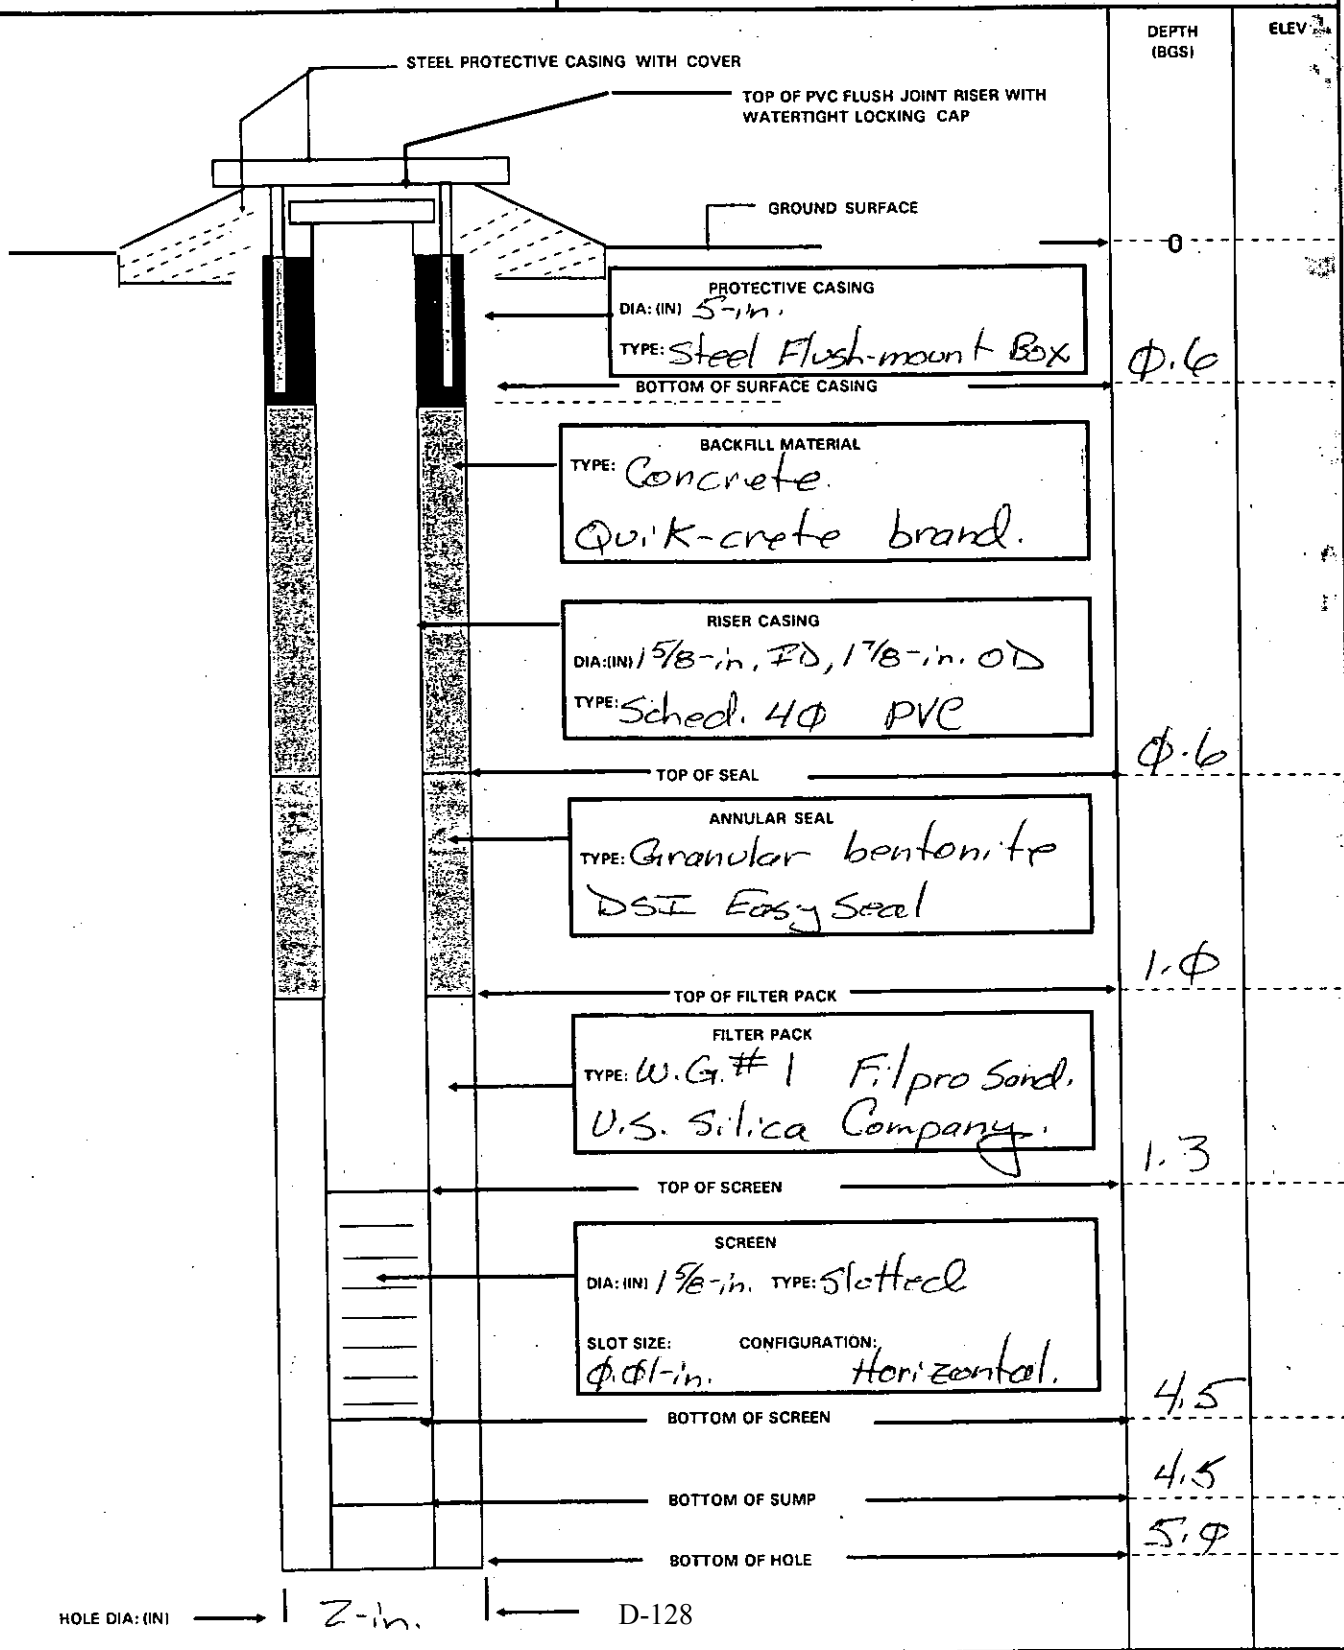 DEPTH
(BGS)
ELEV
STEEL PROTECTIVE CASING WITH COVER
TOP OF PVC FLUSH JOINT RISER WITH
WATERTIGHT LOCKING CAP
GROUND SURFACE
0
PROTECTIVE CASING
DIA: (IN) 5-in.
TYPE: Steel Flush-mount Box
0.6
BOTTOM OF SURFACE CASING
BACKFILL MATERIAL
TYPE: Concrete.
Quik-crete brand.
RISER CASING
DIA:(IN) 1 5/8-in. ID, 1 7/8-in. OD
TYPE: Sched. 40 PVC
0.6
TOP OF SEAL
ANNULAR SEAL
TYPE: Granular bentonite
DSI Easy Seal
1.0
TOP OF FILTER PACK
FILTER PACK
TYPE: W.G. # 1 Filpro Sand.
U.S. Silica Company.
1.3
TOP OF SCREEN
SCREEN
DIA: (IN) 1 5/8-in. TYPE: Slotted
SLOT SIZE: CONFIGURATION:
0.01-in. Horizontal.
4.5
BOTTOM OF SCREEN
4.5
BOTTOM OF SUMP
5.0
BOTTOM OF HOLE
HOLE DIA: (IN) 2-in.
D-128